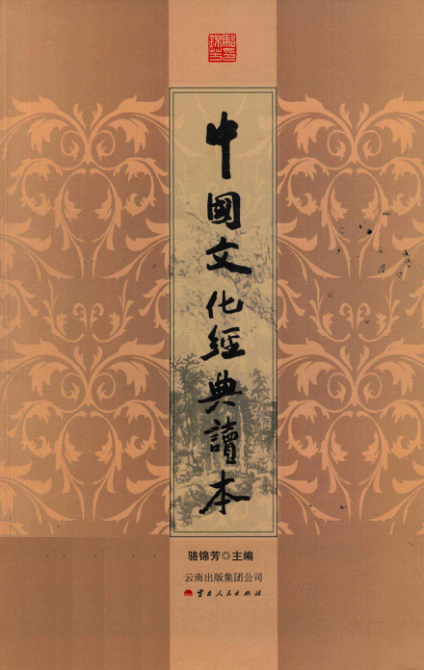 中國文化經典讀本
骆锦芳◎主编
云南出版集团公司
云南人民出版社